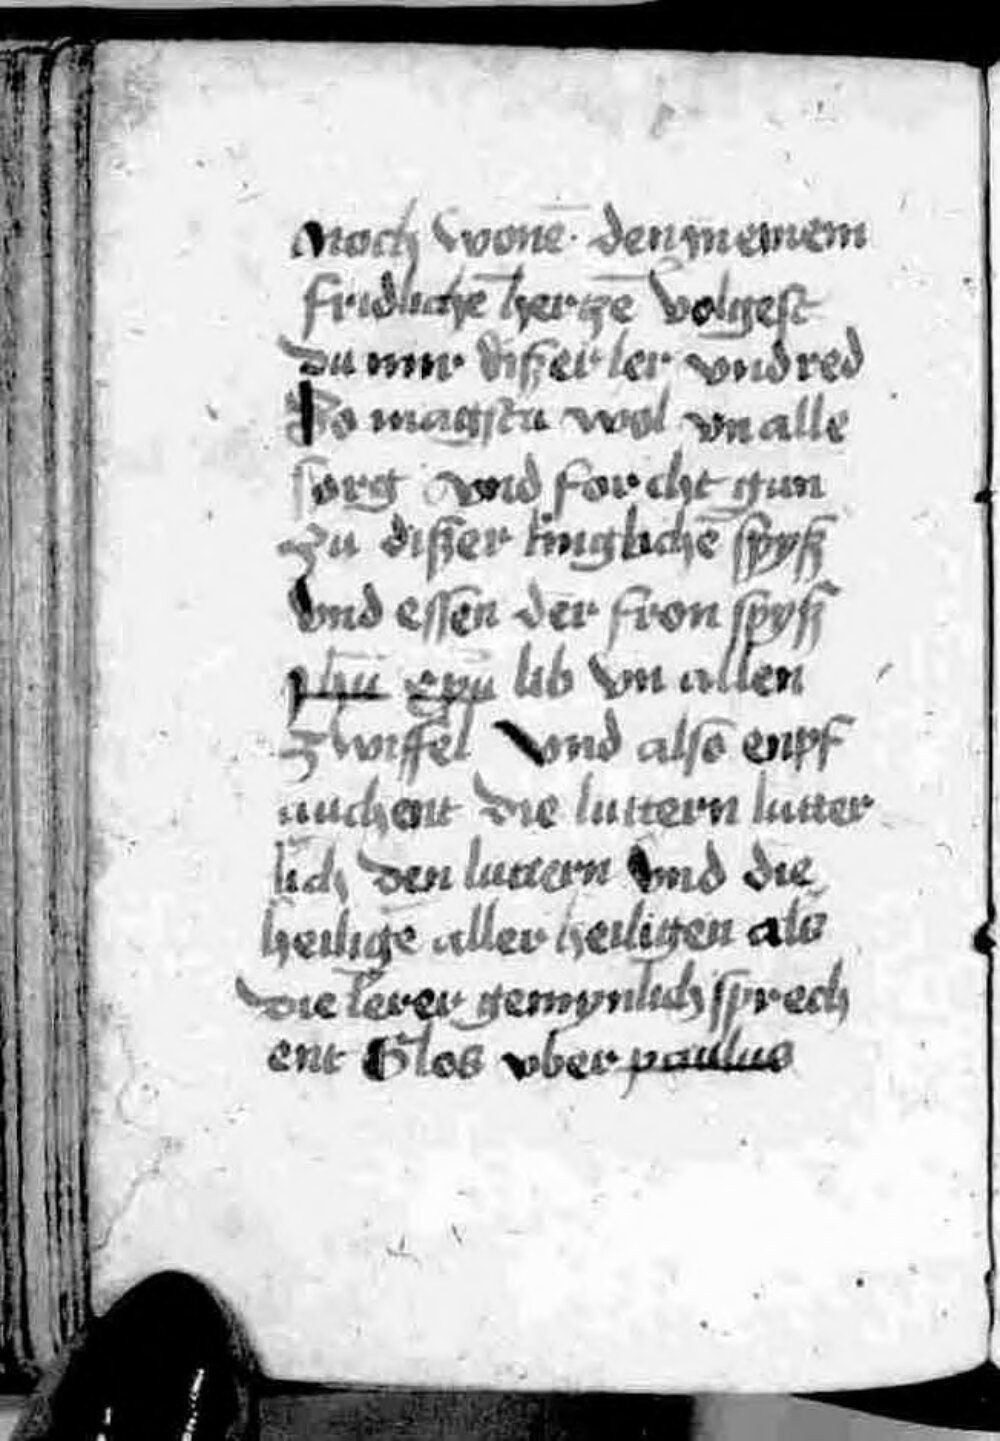 Moch wonē. den in einem
fridlichē hertzē volgest
du mir diszer ler vnd red
So magstu wol vn alle
sorg vnd forcht gun
zu diszer kinglichē spysz
vnd essen der fron spysz
ihū xpū lib vn allen
zwiffel Vnd also enpf
auchent die luttern lutter
lich den luttern vnd die
heilige aller heiligen als
die lerer gemynlich sprech
ent Glos vber paulus